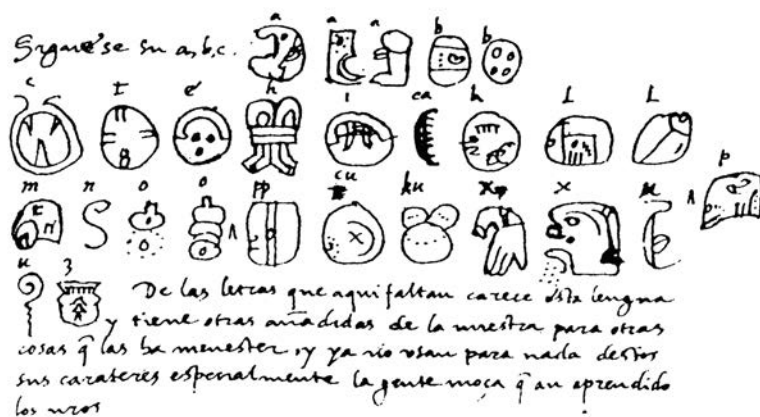 Siguese su a, b, c. a a a b b
c t e h i ca k l l
m n o o pp cu ku x x u p
u z De las letras que aqui faltan carece esta lengua
y tiene otras añadidas de la nuestra para otras
cosas q̃ las ha menester, y ya no vsan para nada destos
sus carateres especialmente la gente moça q̃ an aprendido
los nros